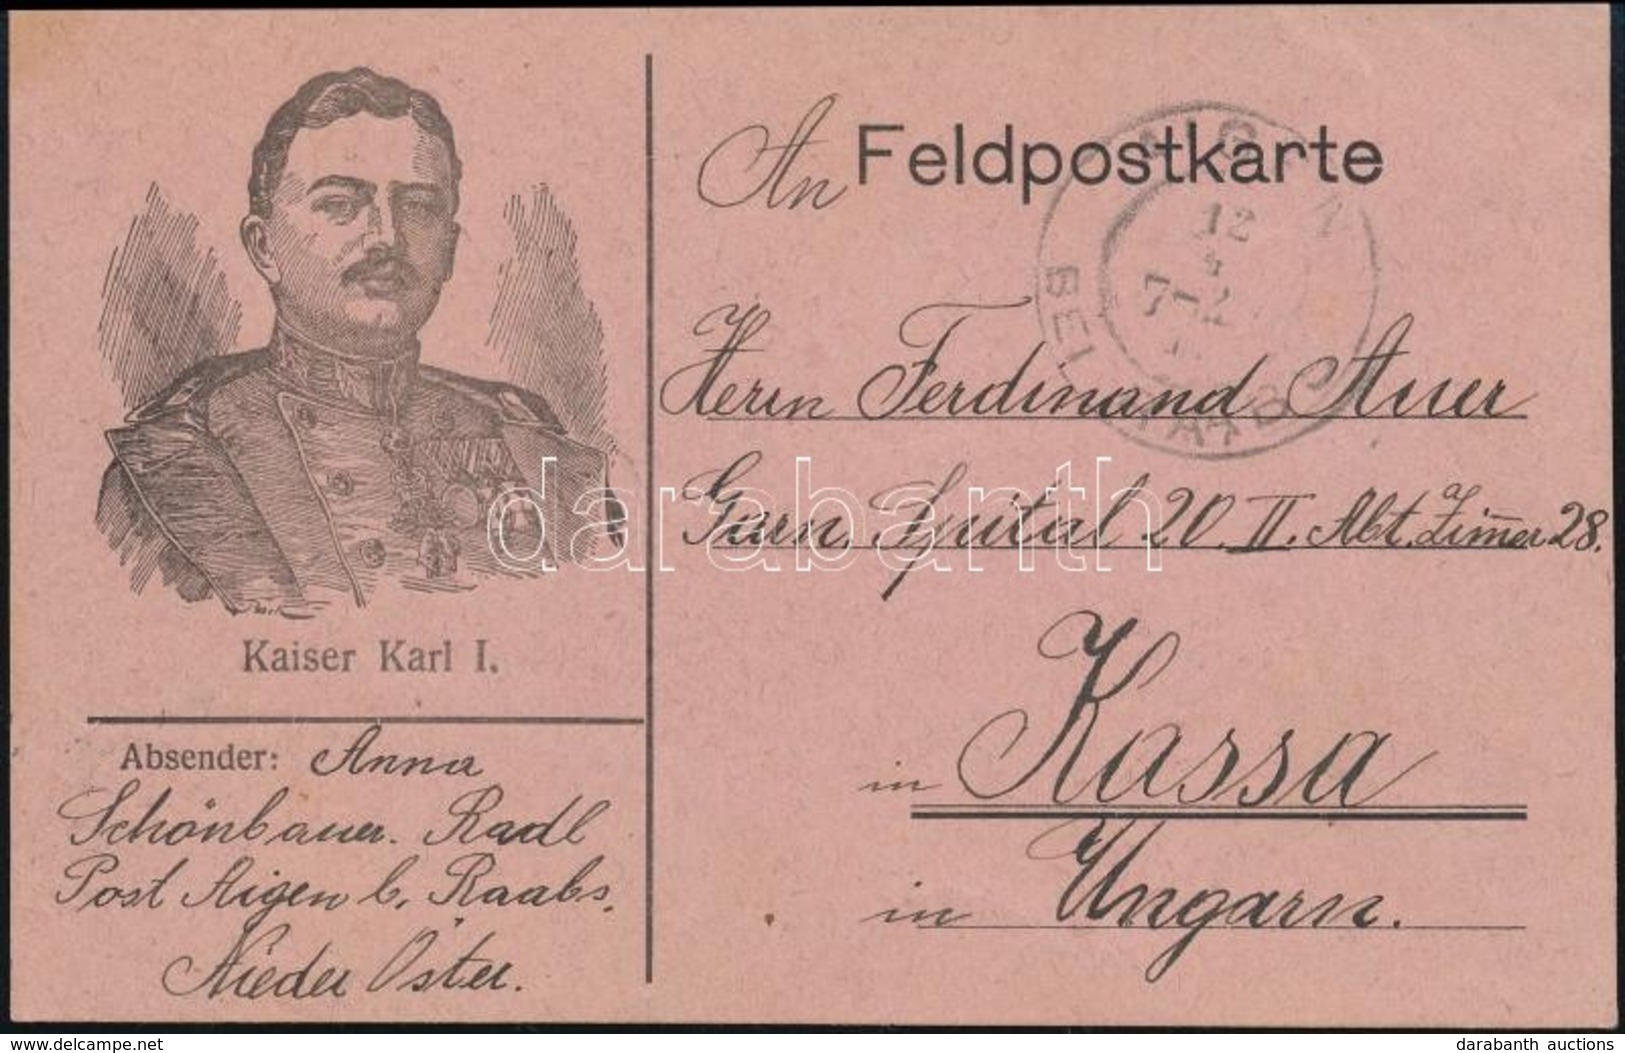 Feldpostkarte
An
Herrn Ferdinand Auer
Garn. Spital 20. II. Abt. Zimmer 28.
in Kassa
in Ungarn.
Kaiser Karl I.
Absender: Anna
Schönbauer. Radl
Post Aigen b. Raabs.
Nieder Öster.
12
7-2
darabanth
delcampe.net
darabanth auctions